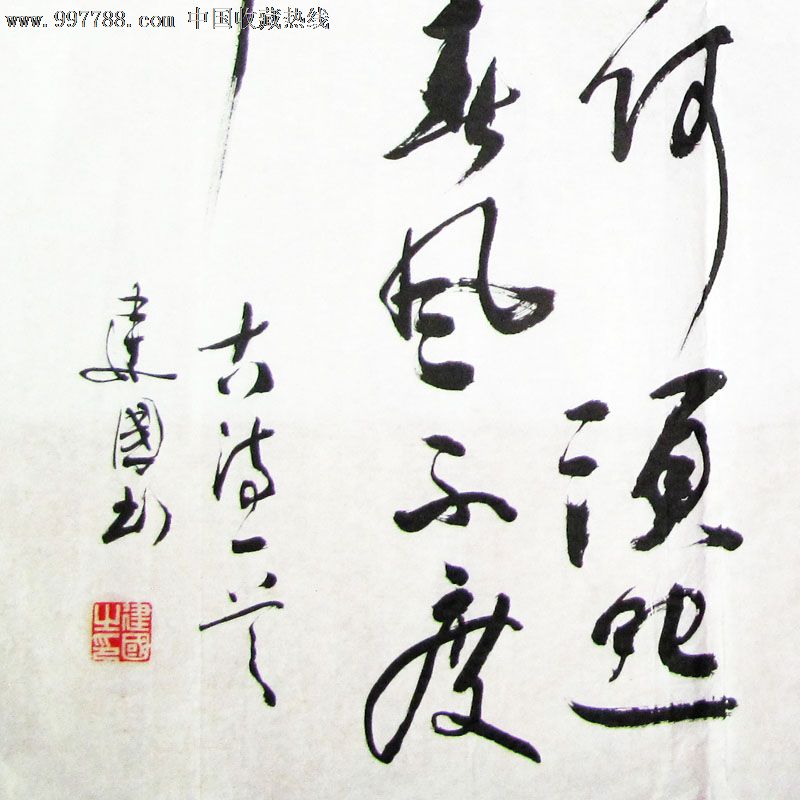 www.997788.com 中国收藏热线
何须怨
春风不度
古诗一首
建國书
建國之印